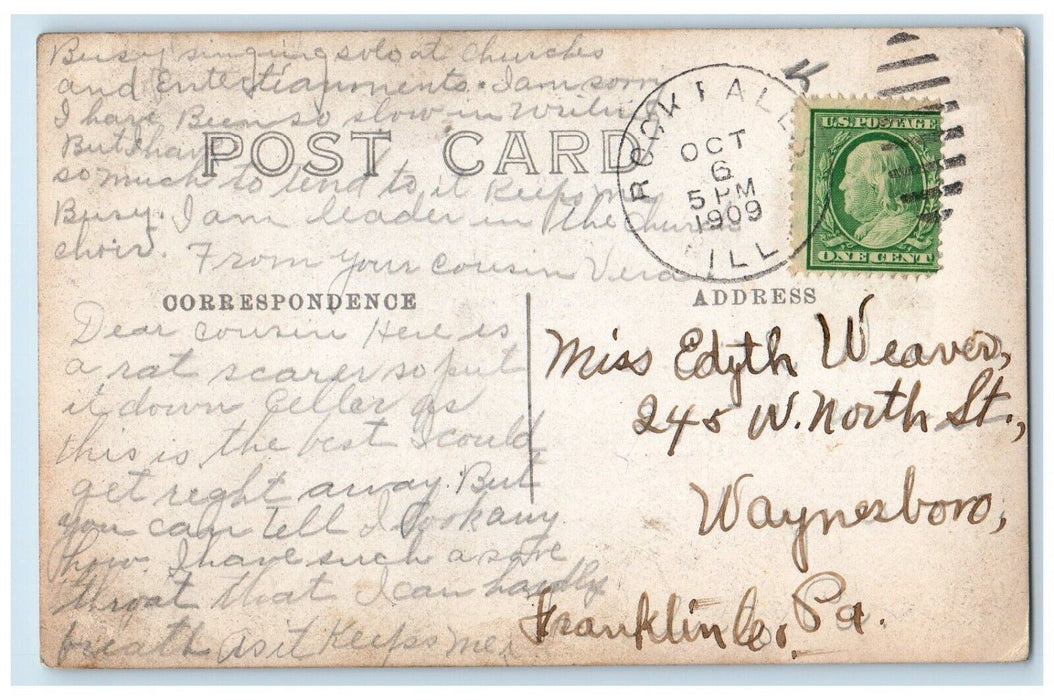 Busy singing solo at churches
and Entertianments. I am sorry
I have Been so slow in writing
But I have
POST CARD
so much to tend to it Keeps me
Busy. I am leader in the church
choir. From your cousin Vera
ROCK FALLS
OCT
6
5 PM
1909
ILL
U.S. POSTAGE
ONE CENT
CORRESPONDENCE
Dear cousin Here is
a rat scarer so put
it down celler as
this is the best I could
get reight away. But
you can tell I look any
how. I have such a sore
throat that I can hardly
breath as it Keeps me
ADDRESS
Miss Edyth Weaver,
245 W. North St.,
Waynesboro,
Franklin Co., Pa.